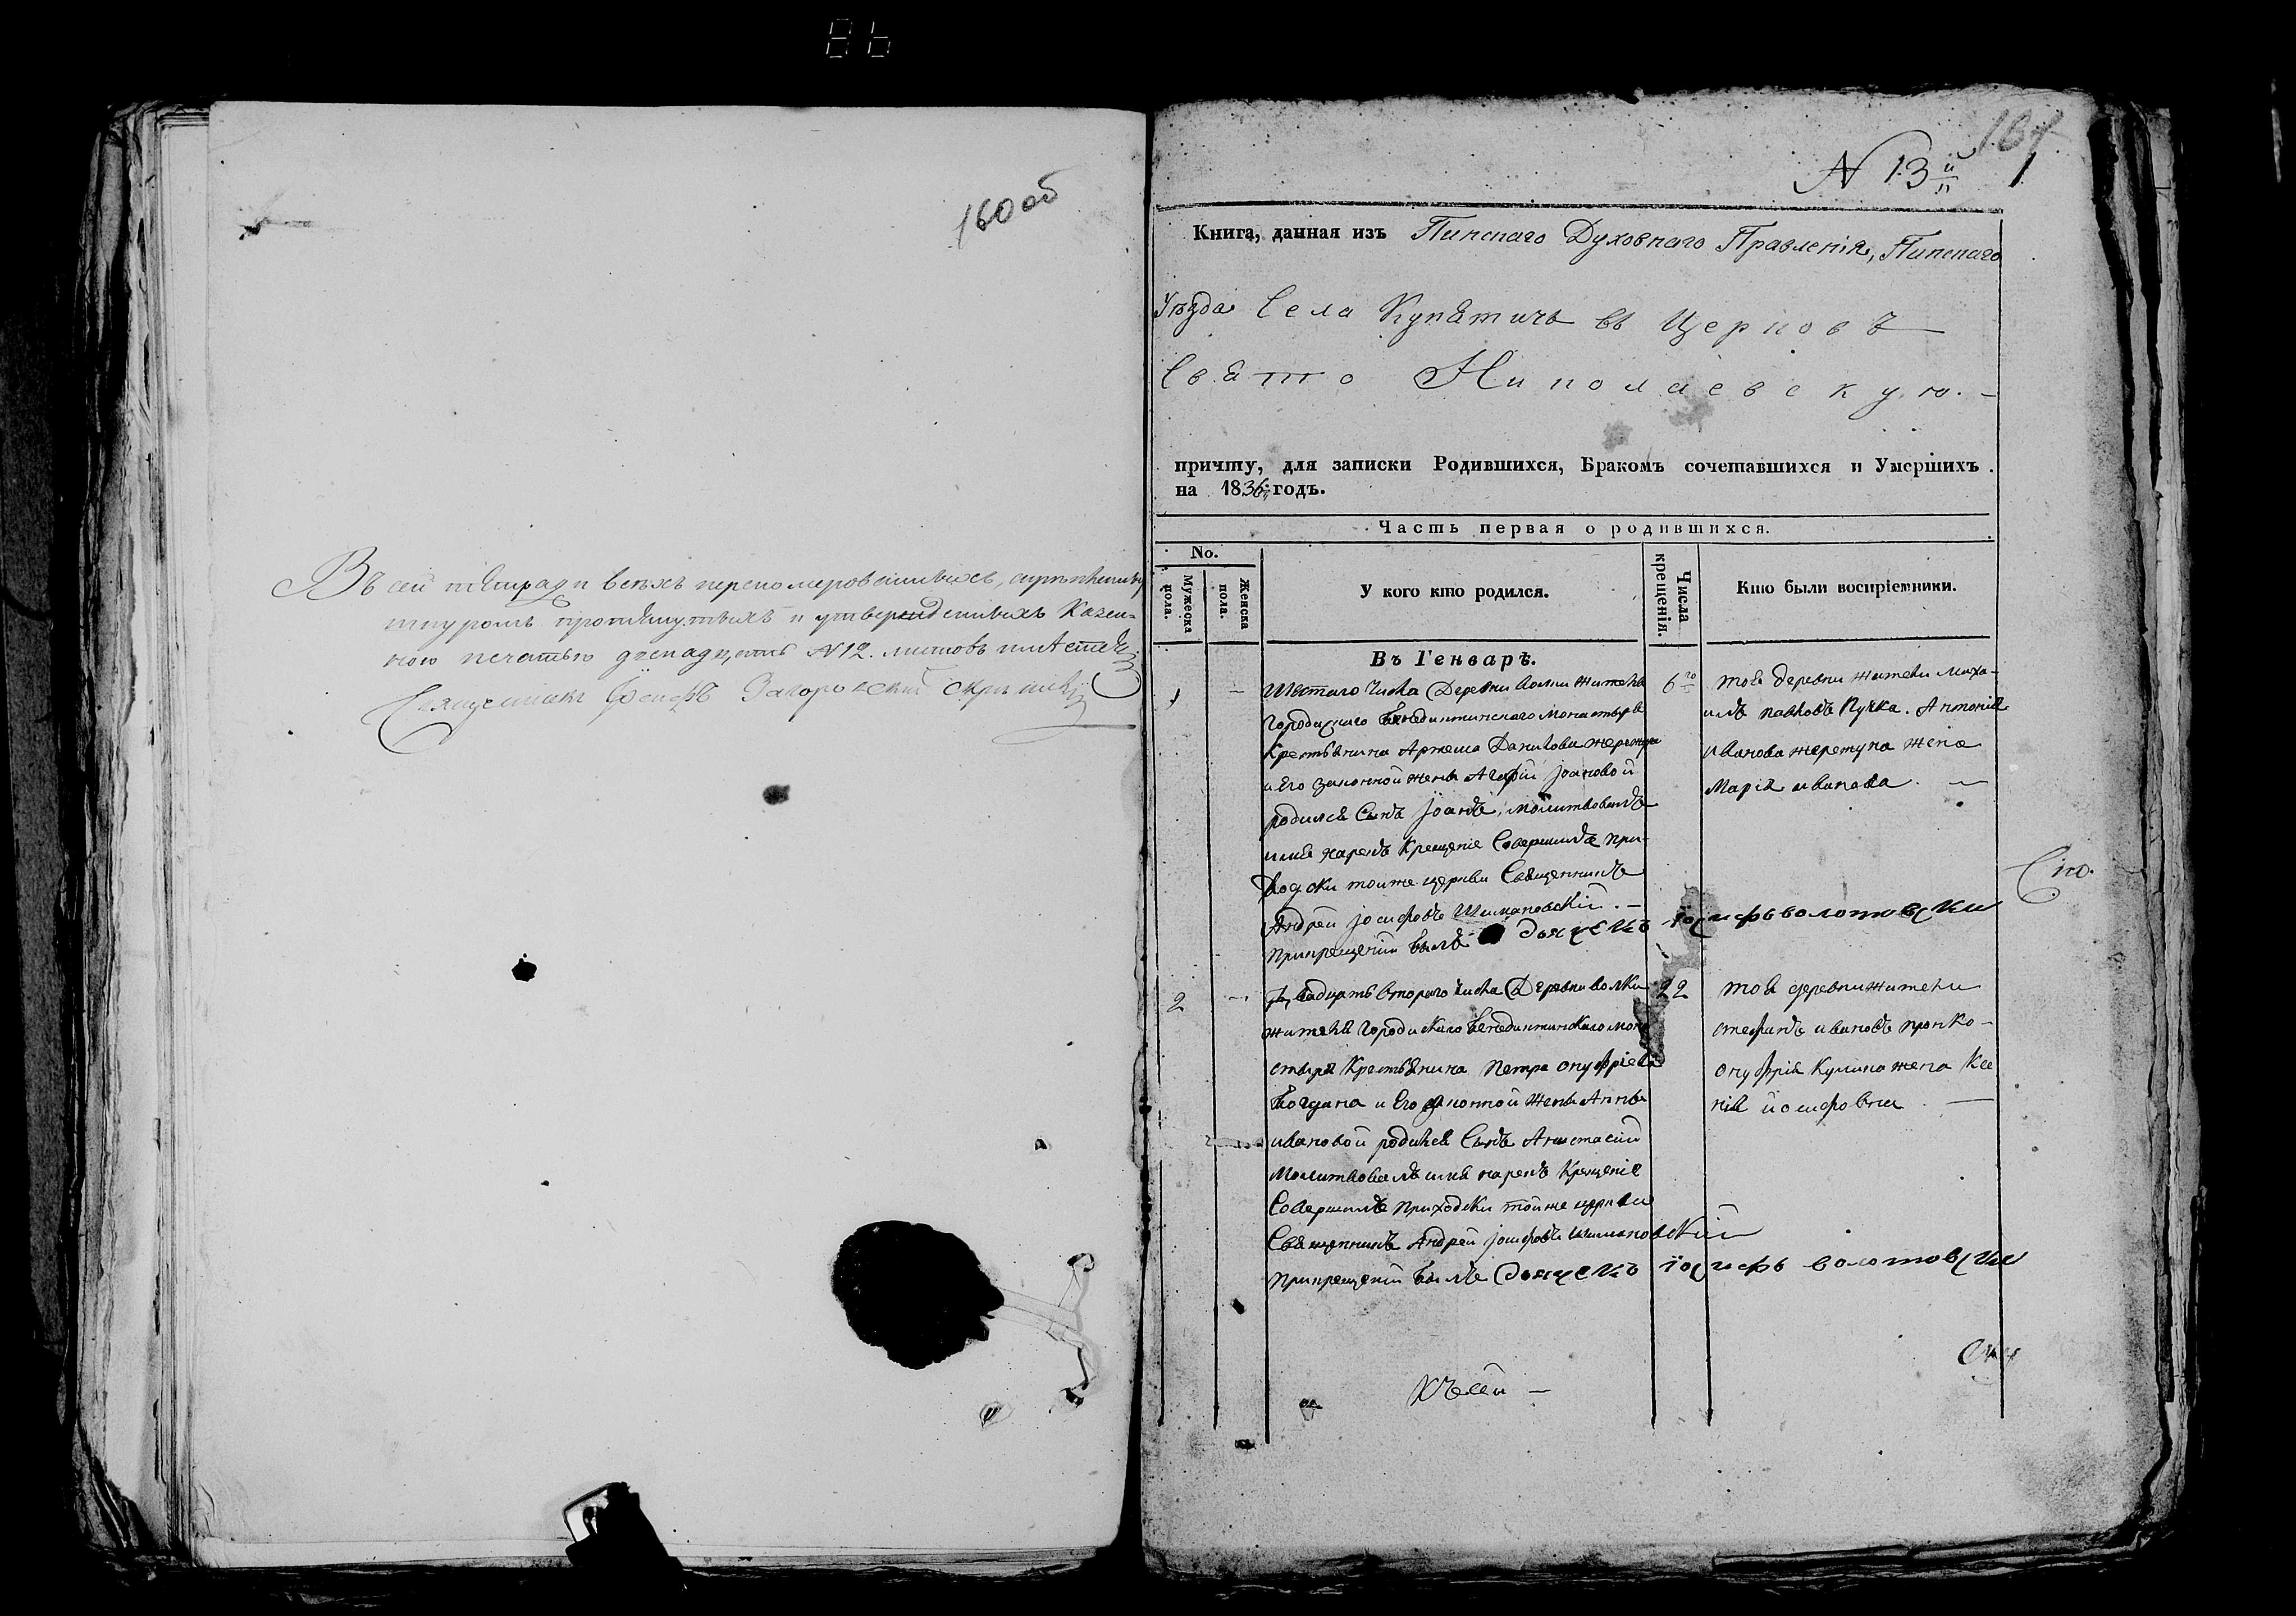 160 об
Въ сей тетради всѣхъ перенумерованныхъ,
шнуромъ протянутыхъ и утвержденныхъ Казен-
ною печатью двенадцать N 12. листовъ имѣется
Священникъ Іосифъ
161
N 13й 1
Книга, данная изъ Пинскаго Духовнаго Правленія, Пинскаго
Уѣзда Села Купятичъ въ Церковь
Свято Николаевскую. -
причту, для записки Родившихся, Бракомъ сочетавшихся и Умершихъ
на 1836 годъ.
Часть первая о родившихся.
No.
Мужеска пола.
Женска пола.
У кого кто родился.
Числа крещенія.
Кто были воспріемники.
Въ Генварѣ.
1 - Шестаго Числа Деревни Волки жителя
Городискаго Бенедиктинскаго Монастыря
Крестьянина Артема Данилова
и Его законной жены Агафіи Іоановой
родился Сынъ Іоанъ, молитвовалъ
имя нареклъ Крещеніе Совершилъ При-
ходски тоиже церкви Священникъ
Андрей Іосифовъ Шимановскій. -
при крещеніи былъ дьячекъ іосифъ волотовски
6го
тоя деревни жители Миха-
илъ Павловъ Пучка. Антонія
Иванова жеретула жена
Марія иванова. -
2 - Двадцать втораго числа Деревни Волки
жителя Городискаго Бенедиктинскаго Мона
стыря Крестьянина Петра Онуфріева
Богдана и Его законной Жены Анны
ивановой родился Сынъ Анастасій
Молитвовалъ имя нареклъ Крещеніе
Совершилъ Приходски тойже церкви
Священникъ Андрей Іосифовъ Шимановскій
При крещеніи былъ дьячекъ іосифъ волотовски
22
тоя деревни жители
стефанъ ивановъ
онуфрія Кулина жена Ксе
нія йосифовны. -
Къ сей -